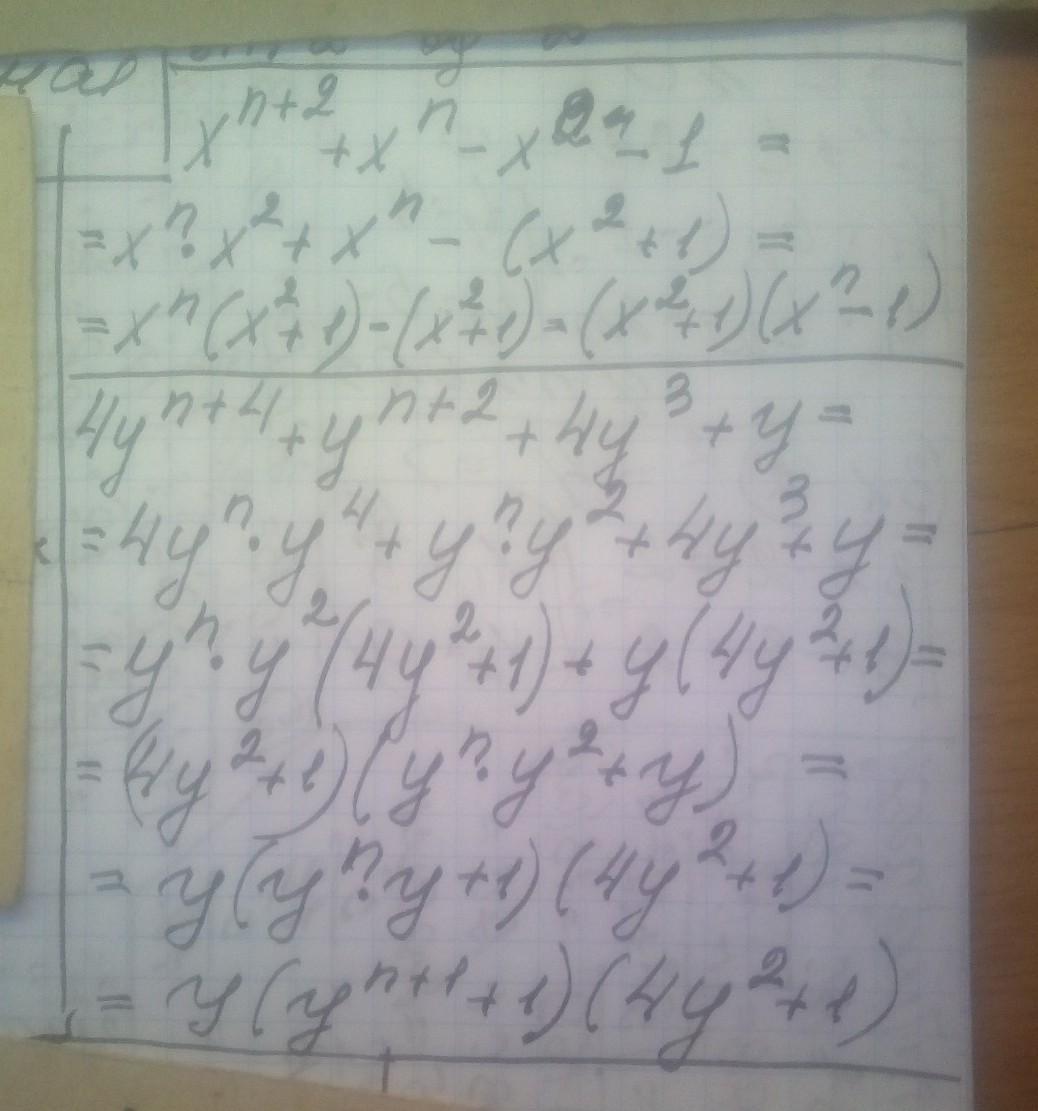 x^{n+2} + x^n - x^2 - 1 =
= x^n · x^2 + x^n - (x^2 + 1) =
= x^n (x^2 + 1) - (x^2 + 1) = (x^2 + 1)(x^n - 1)
4y^{n+4} + y^{n+2} + 4y^3 + y =
= 4y^n · y^4 + y^n · y^2 + 4y^3 + y =
= y^n · y^2 (4y^2 + 1) + y (4y^2 + 1) =
= (4y^2 + 1)(y^n · y^2 + y) =
= y (y^n · y + 1)(4y^2 + 1) =
= y (y^{n+1} + 1)(4y^2 + 1)